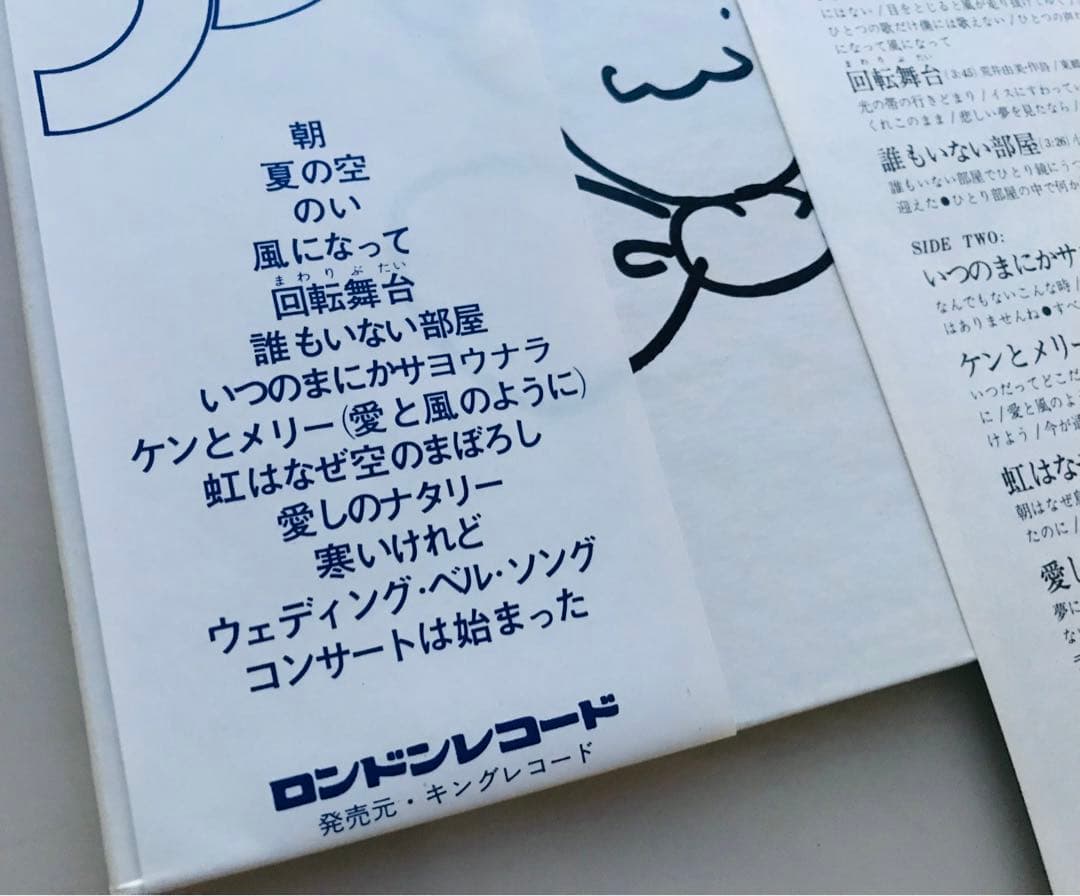 朝
夏の空
のい
風になって
まわりぶたい
回転舞台
誰もいない部屋
いつのまにかサヨウナラ
ケンとメリー(愛と風のように)
虹はなぜ空のまぼろし
愛しのナタリー
寒いけれど
ウェディング・ベル・ソング
コンサートは始まった
ロンドンレコード
発売元・キングレコード
にはない/目をとじると風が走り抜けて
ひとつの歌だけ僕には歌えない/ひとつの
になって風になって
まわりぶたい
回転舞台(3:45)荒井由実・作詩/東郷
光の帯の行きどまり/イスにすわってい
くれこのまま/悲しい夢を見たなら/
誰もいない部屋(3:26)
誰もいない部屋でひとり鏡にうつ
迎えた●ひとり部屋の中で何か
SIDE TWO:
いつのまにかサ
なんでもないこんな時/
はありませんね●すべ
ケンとメリー
いつだってどこだ
に/愛と風のよ
けよう/今が
虹はな
朝はなぜ
たのに/
愛し
夢に
な